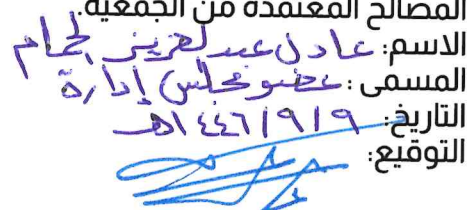 المصالح المعتمدة من الجمعية.
الاسم: عادل عبدالعزيز الحمام
المسمى: عضو مجلس إدارة
التاريخ: ١٤٤٦/٩/٩هـ
التوقيع: